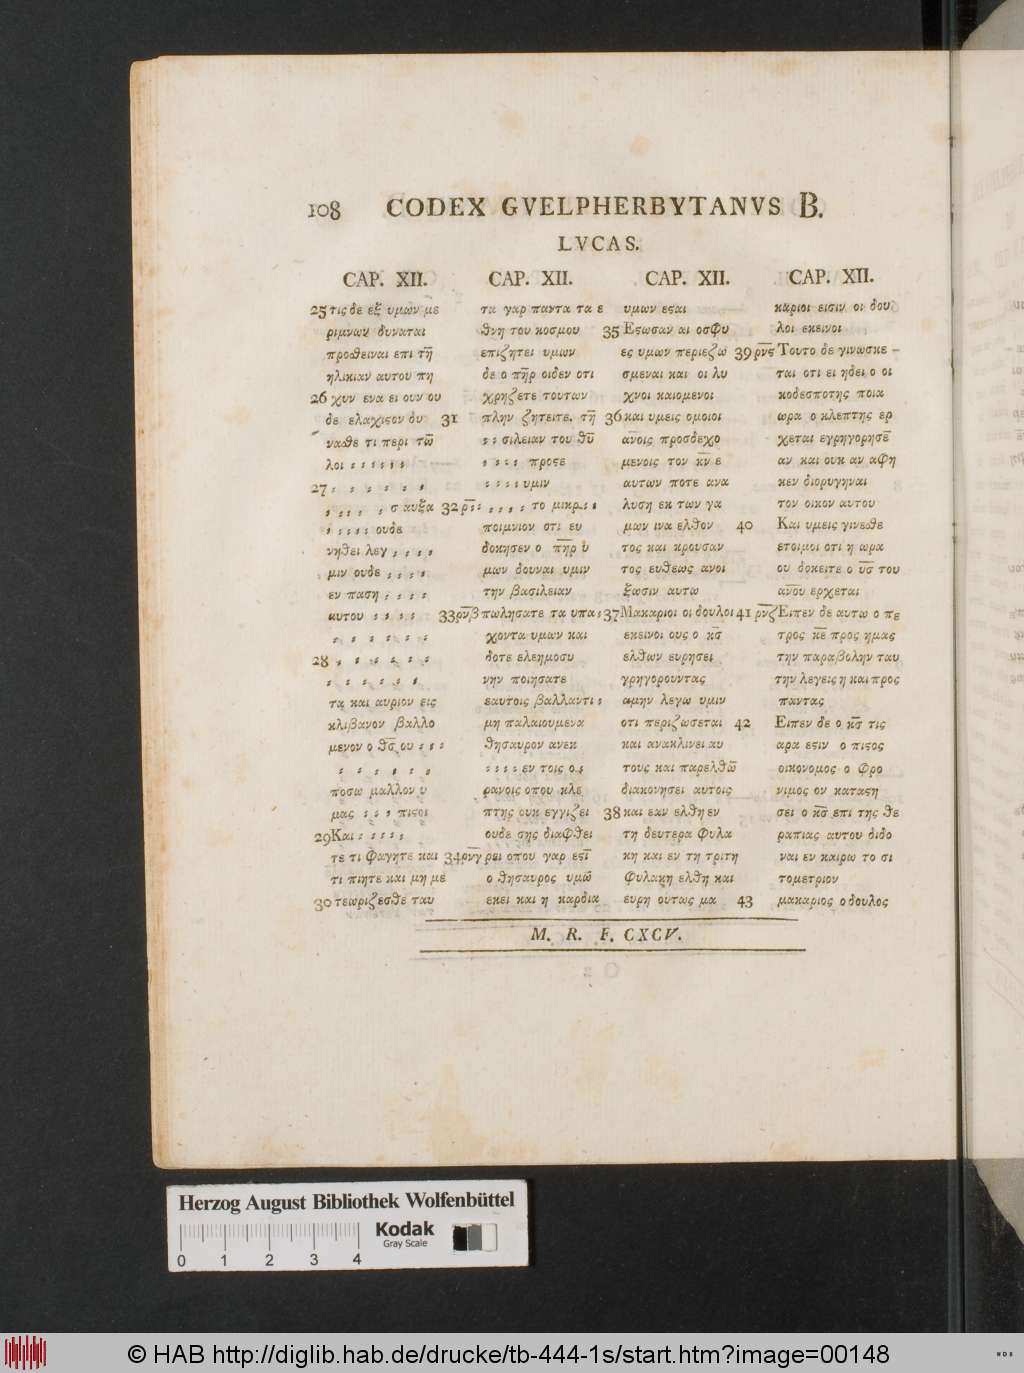 108 CODEX GVELPHERBYTANVS B.
LVCAS.
CAP. XII.
25 τις δε εξ υμων με
ριμνων δυναται
προϑειναι επι τη̅
ηλικιαν αυτου πη
26 χυν ενα ει ουν ου
δε ελαχιϛον δυ
ναϑε τι περι τω̅
λοι : : : : : :
27 : : : : : :
: : : : σ αυξα
: : : : ουδε
νηϑει λεγ : : : :
μιν ουδε : : : :
εν παση : : : :
αυτου : : : :
: : : : : :
28 : : : : : :
: : : : : :
τα και αυριον εις
κλιβανον βαλλο
μενον ο ϑ̅ς̅ ου : : :
: : : : : :
ποσω μαλλον υ
μας : : : πιϛοι
29 Και : : : : :
τε τι φαγητε και
τι πιητε και μη με
30 τεωριζεσϑε ταυ
CAP. XII.
τα γαρ παντα τα ε
ϑνη του κοσμου
επιζητει υμων
δε ο π̅η̅ρ̅ οιδεν οτι
χρηζετε τουτων
31 πλην ζητειτε. τη̅
: : σιλειαν του ϑ̅υ̅
: : : : προϛε
: : : : υμιν
32 ρ̅ς̅ : : : : : το μικρ : :
ποιμνιον οτι ευ
δοκησεν ο π̅η̅ρ̅ υ
μων δουναι υμιν
την βασιλειαν
33 ρ̅ν̅β̅ πωλησατε τα υπα :
χοντα υμων και
δοτε ελεημοσυ
νην ποιησατε
εαυτοις βαλλαντι :
μη παλαιουμενα
ϑησαυρον ανεκ
: : : : εν τοις ο :
ρανοις οπου κλε
πτης ουκ εγγιζει
ουδε σης διαφϑει
34 ρ̅ν̅γ̅ ρει οπου γαρ εϛι̅
ο ϑησαυρος υμω̅
εκει και η καρδια
CAP. XII.
υμων εϛαι
35 Εϛωσαν αι οσφυ
ες υμων περιεζω
σμεναι και οι λυ
χνοι καιομενοι
36 και υμεις ομοιοι
α̅ν̅οις προσδεχο
μενοις τον κ̅ν̅ ε
αυτων ποτε ανα
λυση εκ των γα
μων ινα ελϑον
τος και κρουσαν
τος ευϑεως ανοι
ξωσιν αυτω
37 Μακαριοι οι δουλοι
εκεινοι ους ο κ̅ς̅
ελϑων ευρησει
γρηγορουντας
αμην λεγω υμιν
οτι περιζωσεται
και ανακλινει αυ
τους και παρελϑω̅
διακονησει αυτοις
38 και εαν ελϑη εν
τη δευτερα φυλα
κη και εν τη τριτη
φυλακη ελϑη και
ευρη ουτως μα
CAP. XII.
καριοι εισιν οι δου
λοι εκεινοι
39 ρ̅ν̅ς̅ Τουτο δε γινωσκε –
ται οτι ει ηδει ο οι
κοδεσποτης ποια
ωρα ο κλεπτης ερ
χεται εγρηγορησε̅
αν και ουκ αν αφη
κεν διορυγηναι
τον οικον αυτου
40 Και υμεις γινεϑε
ετοιμοι οτι η ωρα
ου δοκειτε ο υ̅ς̅ του
α̅ν̅ο̅υ̅ ερχεται
41 ρ̅ν̅ζ̅ Ειπεν δε αυτω ο πε
τρος κ̅ε̅ προς ημας
την παραβολην ταυ
την λεγεις η και προς
παντας
42 Ειπεν δε ο κ̅ς̅ τις
αρα εϛιν ο πιϛος
οικονομος ο φρο
νιμος ον καταϛη
σει ο κ̅ς̅ επι της ϑε
ραπιας αυτου διδο
ναι εν καιρω το σι
τομετριον
43 μακαριος ο δουλος
M. R. F. CXCV.
Herzog August Bibliothek Wolfenbüttel
Kodak
Gray Scale
0 1 2 3 4
© HAB http://diglib.hab.de/drucke/tb-444-1s/start.htm?image=00148